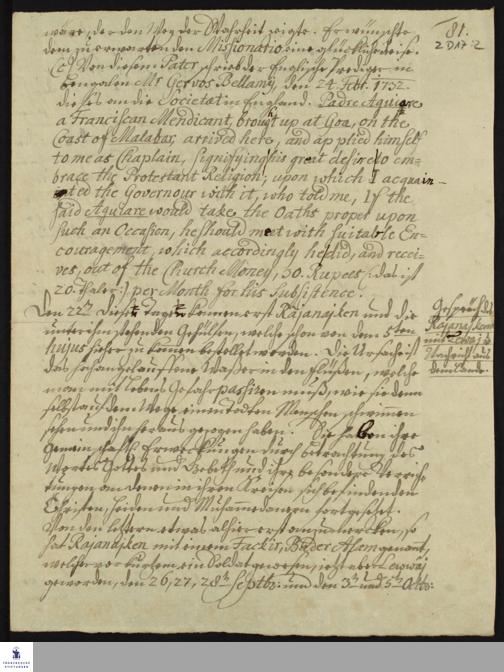 81.
2 D 17 : 2
wäre, der den Weg der Wahrheit zeigte. Er wünschte
dem zu erwartenden Missionario eine glückliche Reise.
(c) Von diesem Pater schrieb der Englische Prediger in
Bengalen Mr Gervos Bellamy, den 24. Febr. 1732.
dieses an die Societat in England. Padre Aquiare
a Franciscan Mendicant, brought up at Goa, on the
Coast of Malabar, arrived here, and applied himself
to me as Chaplain, signifying his great desire to em-
brace the Protestant Religion, upon which I acquain-
ted the Governour with it, who told me, If the
said Aquiare would take the Oaths proper upon
such an Occasion, he should meet with suitable En-
couragement, which accordingly he did, and recei-
ves, out of the Church Money, 30. Rupees (: das ist
20. Thaler :) per Month for his Subsistence.
Den 22ten dieses Tages kamen erst Rajanajken und die
unter ihm stehenden Gehülfen, welche schon von dem 5ten
hujus hieher zu kommen bestellet worden. Die Ursache ist
das hoch angelauffene Wasser in den Flüßen, welche
man mit Lebens Gefahr passiren muß, wie sie denn
selbst auf dem Wege einen todten Menschen schwimmen
sehen und ihn heraus gezogen haben. Sie haben ihre
gemeinschaftl. Erweckungen durch betrachtung des
Wortes Gottes und Gebeth und ihre besondere Verrich-
tungen an denen in ihren Kreisen sich befindenden
Christen, Heiden und Muhamedanern fortgesetzt.
Von den letztern etwas alhier erst anzumercken, so
hat Rajanajken mit einem Fackir, Buder Alam genant,
welcher vor kurtzem ein Soldat gewesen, jetzt aber
geworden, den 26, 27, 28ten Septbr: und den 3ten und 5ten Octbr:
Gespräch des
Rajanajken
mit
Nachricht aus
dem Lande.
FRANCKESCHE
STIFTUNGEN